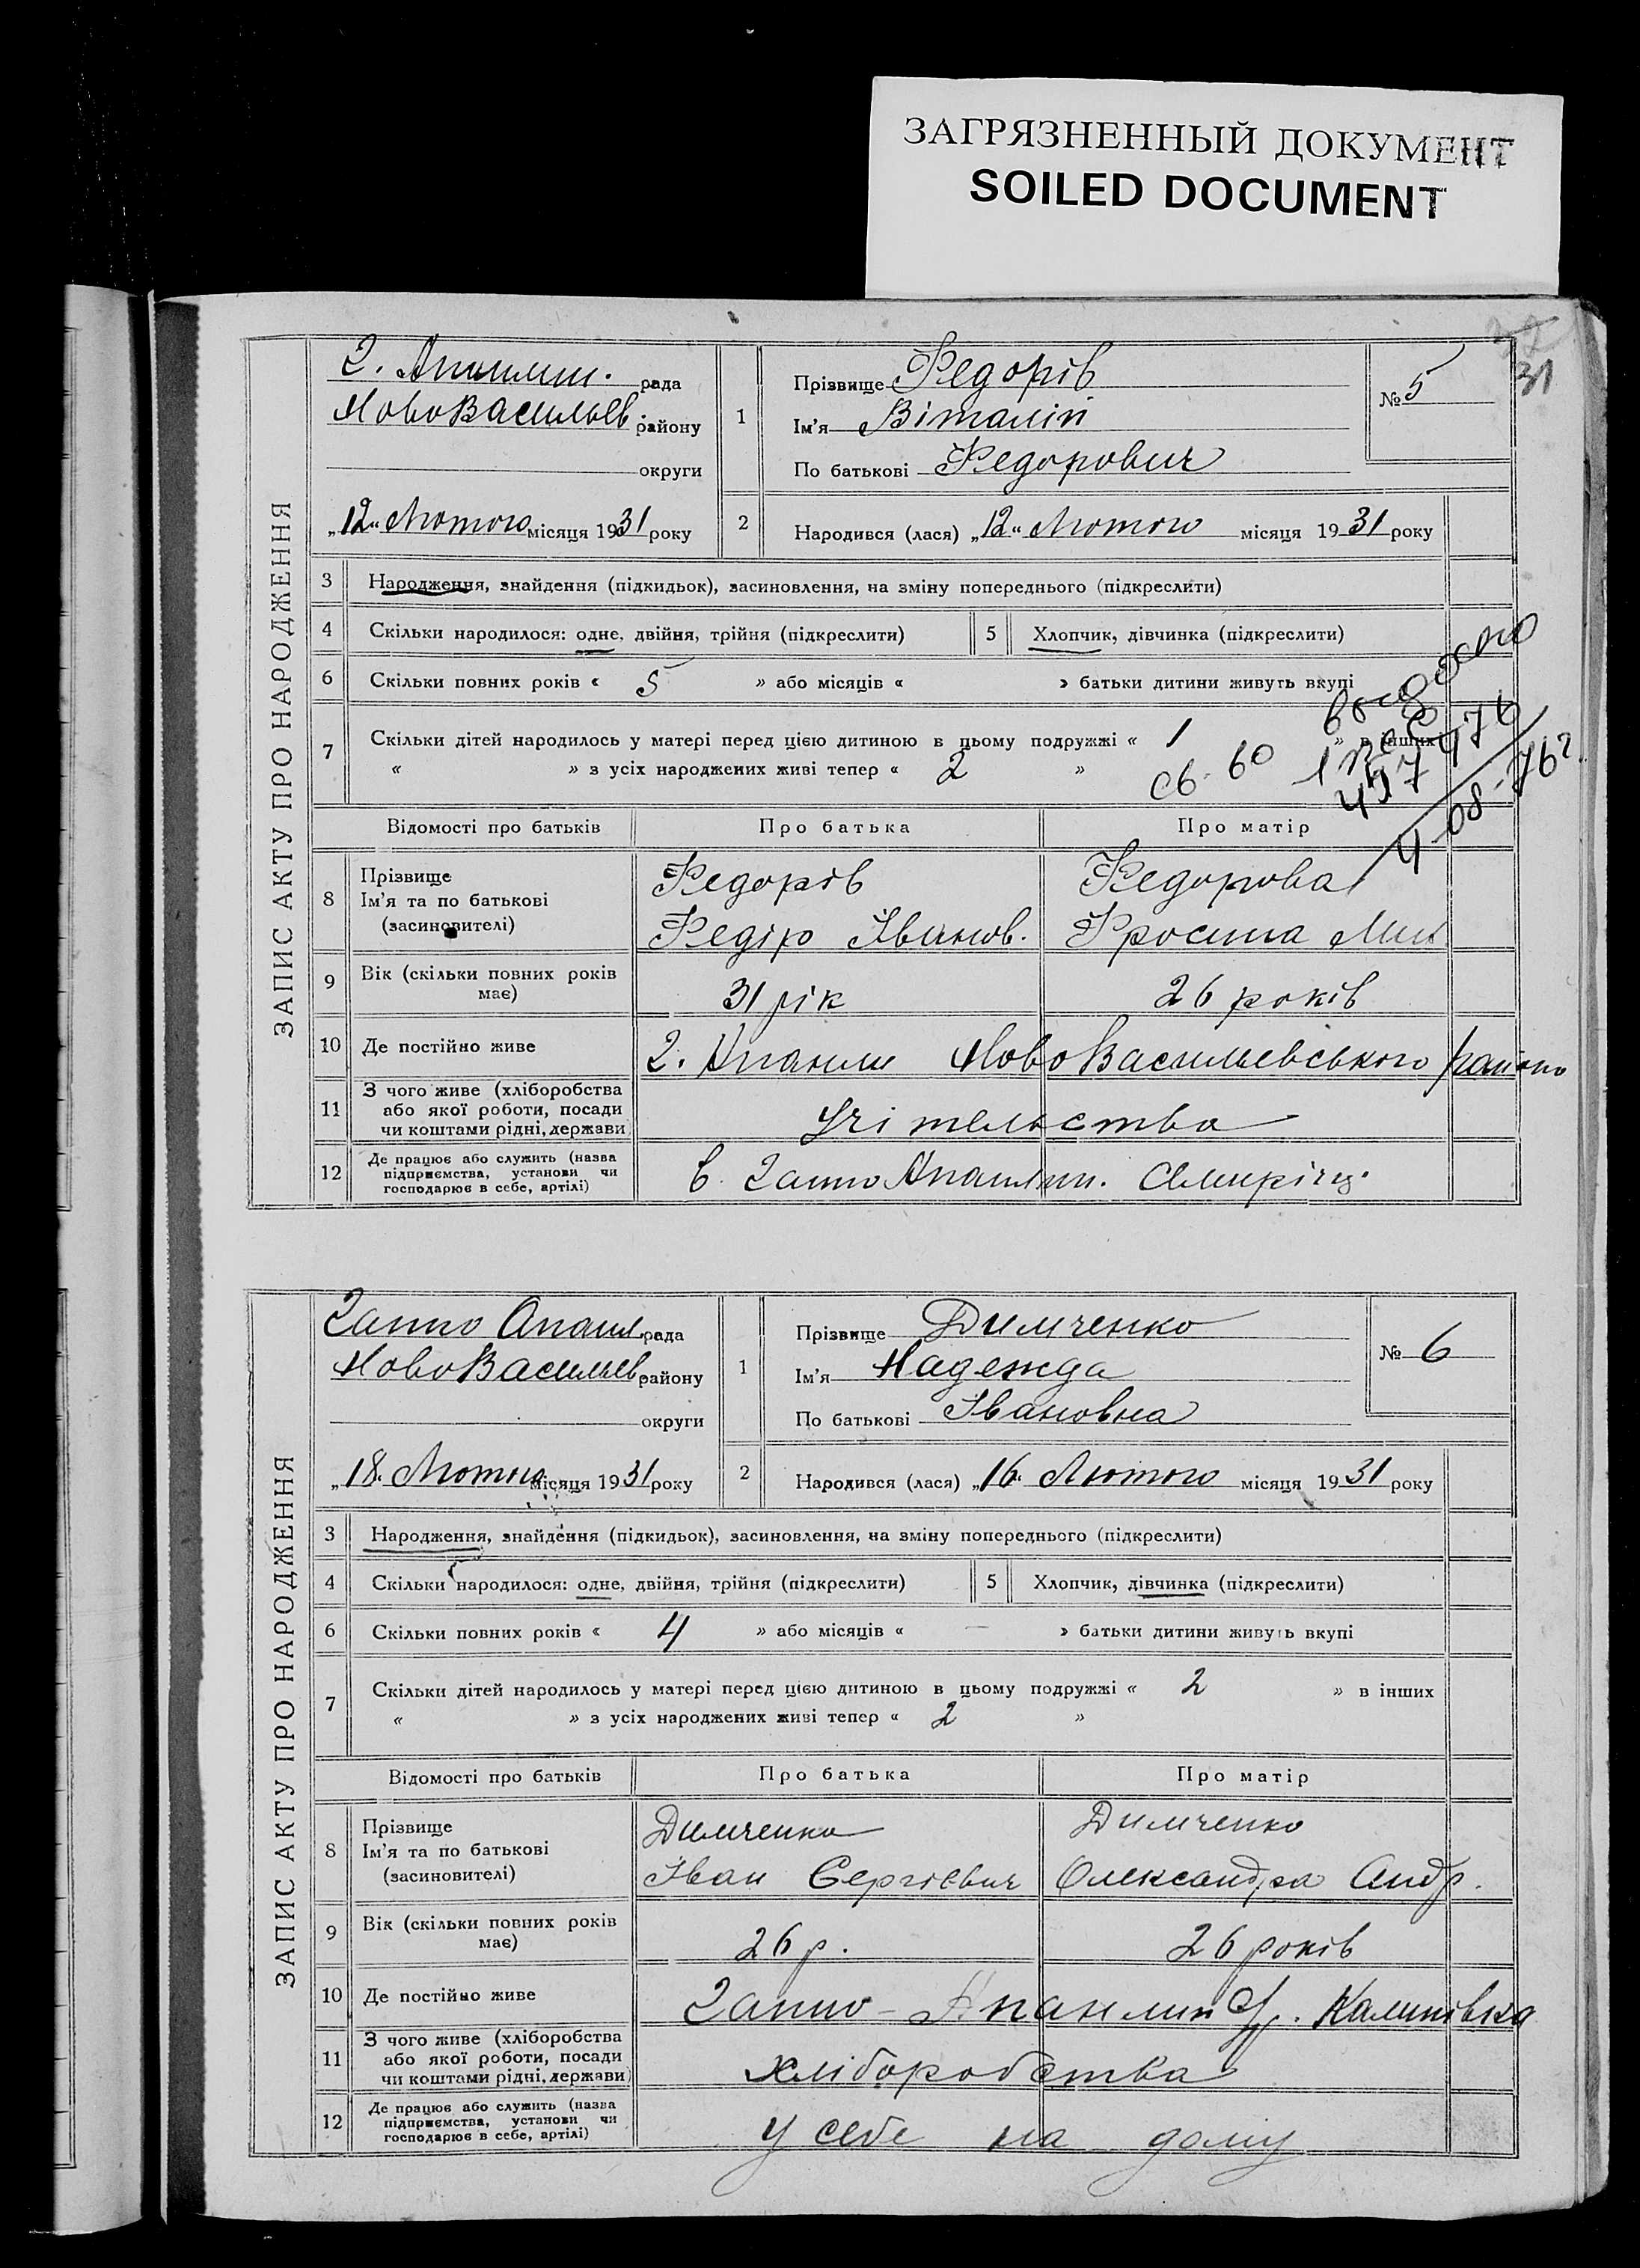 ЗАГРЯЗНЕННЫЙ ДОКУМЕНТ
SOILED DOCUMENT
31
ЗАПИС АКТУ ПРО НАРОДЖЕННЯ
рада
НовоВасильев. району
округи
„12“ Лютого місяця 1931 року
1
Прізвище Федорів
Ім'я Віталій
По батькові Федорович
№ 5
2
Народився (лася) „12“ Лютого місяця 1931 року
3 Народження, знайдення (підкидьок), засиновлення, на зміну попереднього (підкреслити)
4 Скільки народилося: одне, двійня, трійня (підкреслити) 5 Хлопчик, дівчинка (підкреслити)
6 Скільки повних років « 5 » або місяців « » батьки дитини живуть вкупі
7 Скільки дітей народилось у матері перед цією дитиною в цьому подружжі « 1 » в інших
« » з усіх народжених живі тепер « 2 »
4-08-76г.
Відомості про батьків Про батька Про матір
8 Прізвище
Ім'я та по батькові
(засиновителі)
Федорів
Федір Іванов.
Федорова
Фросина Мик
9 Вік (скільки повних років має)
31 рік
26 років
10 Де постійно живе
НовоВасильевського району
11 З чого живе (хліборобства
або якої роботи, посади
чи коштами рідні, держави)
Учітельства
12 Де працює або служить (назва
підприємства, установи чи
господарює в себе, артілі)
в
ЗАПИС АКТУ ПРО НАРОДЖЕННЯ
рада
НовоВасильев району
округи
„18. Лютого місяця 1931 року
1
Прізвище Димченко
Ім'я Надежда
По батькові Івановна
№ 6
2
Народився (лася) „16. Лютого місяця 1931 року
3 Народження, знайдення (підкидьок), засиновлення, на зміну попереднього (підкреслити)
4 Скільки народилося: одне, двійня, трійня (підкреслити) 5 Хлопчик, дівчинка (підкреслити)
6 Скільки повних років « 4 » або місяців « — » батьки дитини живуть вкупі
7 Скільки дітей народилось у матері перед цією дитиною в цьому подружжі « 2 » в інших
« » з усіх народжених живі тепер « 2 »
Відомості про батьків Про батька Про матір
8 Прізвище
Ім'я та по батькові
(засиновителі)
Димченко
Іван Сергієвич
Димченко
Олександра Андр.
9 Вік (скільки повних років має)
26 р.
26 років
10 Де постійно живе
Калинівка
11 З чого живе (хліборобства
або якої роботи, посади
чи коштами рідні, держави)
хліборобства
12 Де працює або служить (назва
підприємства, установи чи
господарює в себе, артілі)
у себе на дому